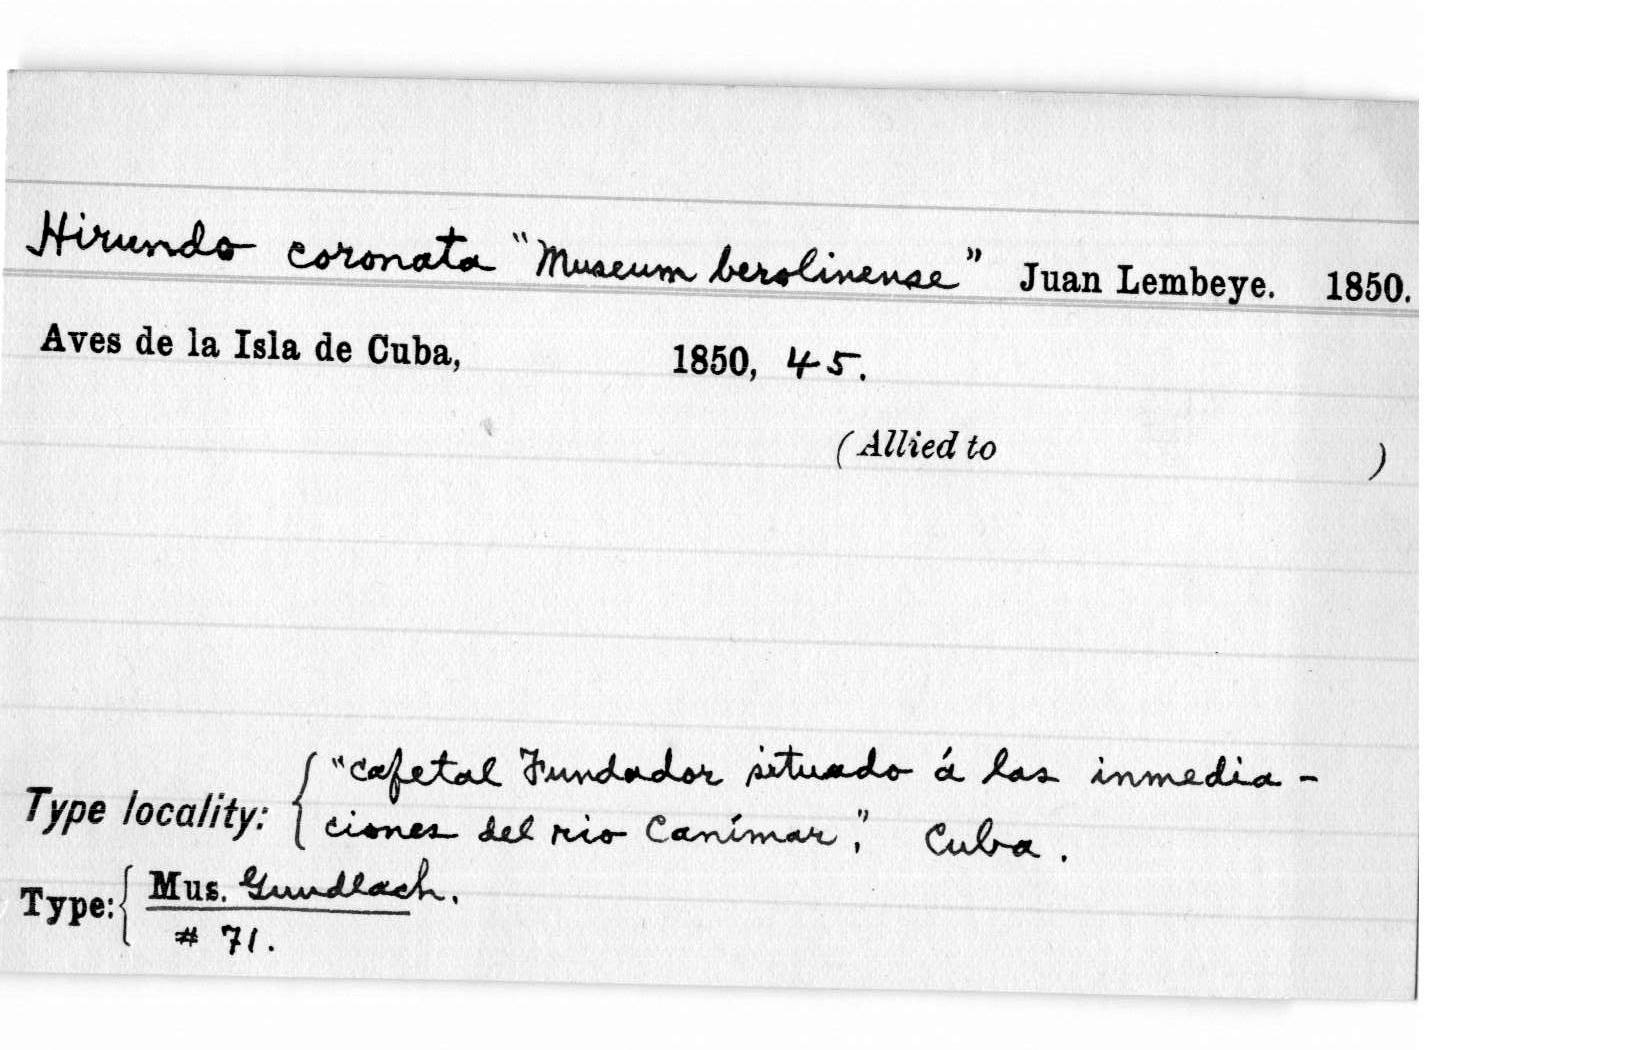 Hirundo coronata "Museum berolinense" Juan Lembeye. 1850.
Aves de la Isla de Cuba, 1850, 45.
(Allied to )
Type locality: { "cafetal Fundador situado á las inmedia-
ciones del rio Canímar," Cuba.
Type: { Mus. Gundlach.
# 71.